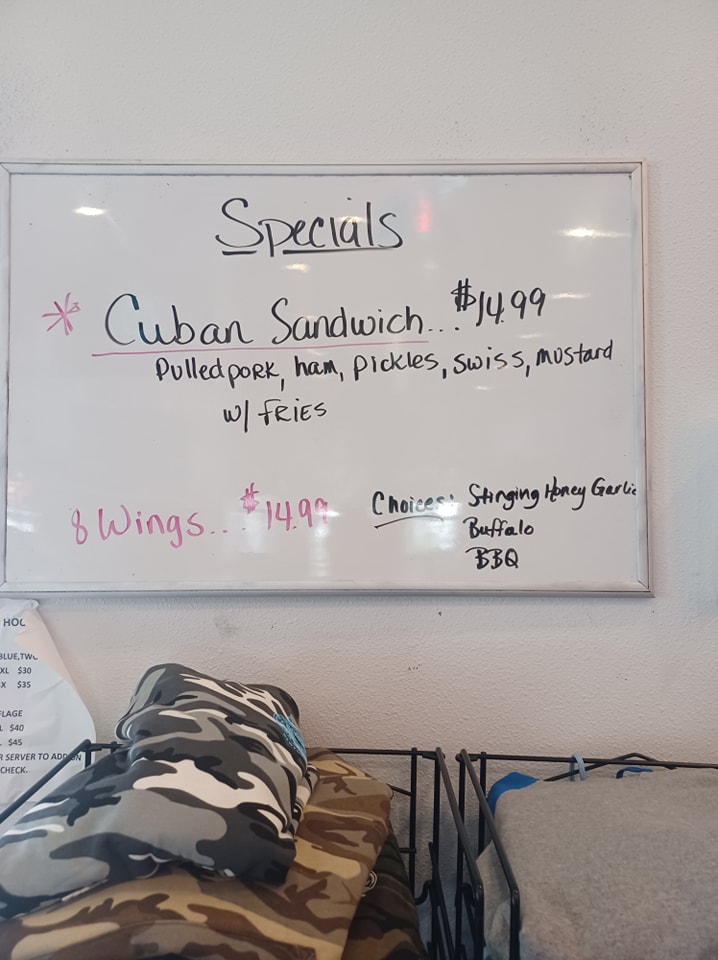 Specials
* Cuban Sandwich... $14.99
Pulled pork, ham, pickles, swiss, mustard
w/ FRIES
8 Wings... $14.99
Choices: Stinging Honey Garlic
Buffalo
BBQ
BLUE,
XL $30
X $35
$40
$45
SERVER TO ADD ON
CHECK.